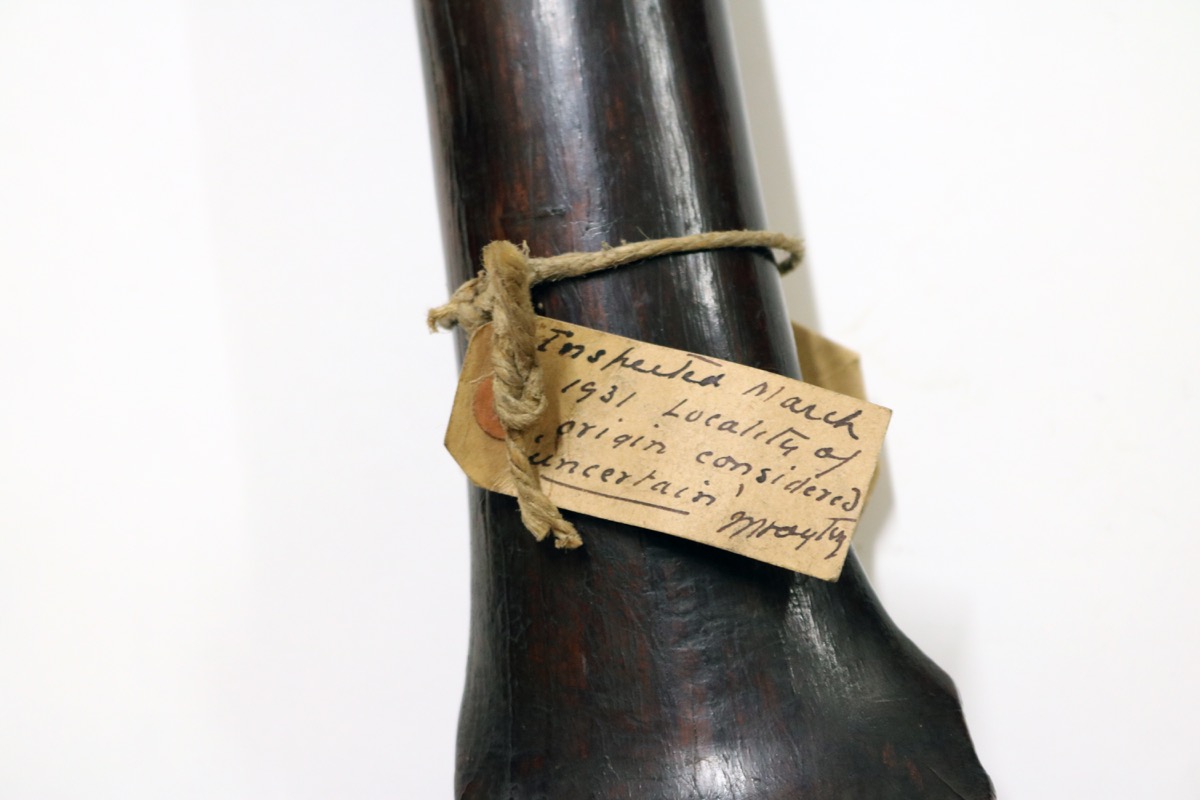 Inspected March
1931 Locality of
origin considered
'uncertain'